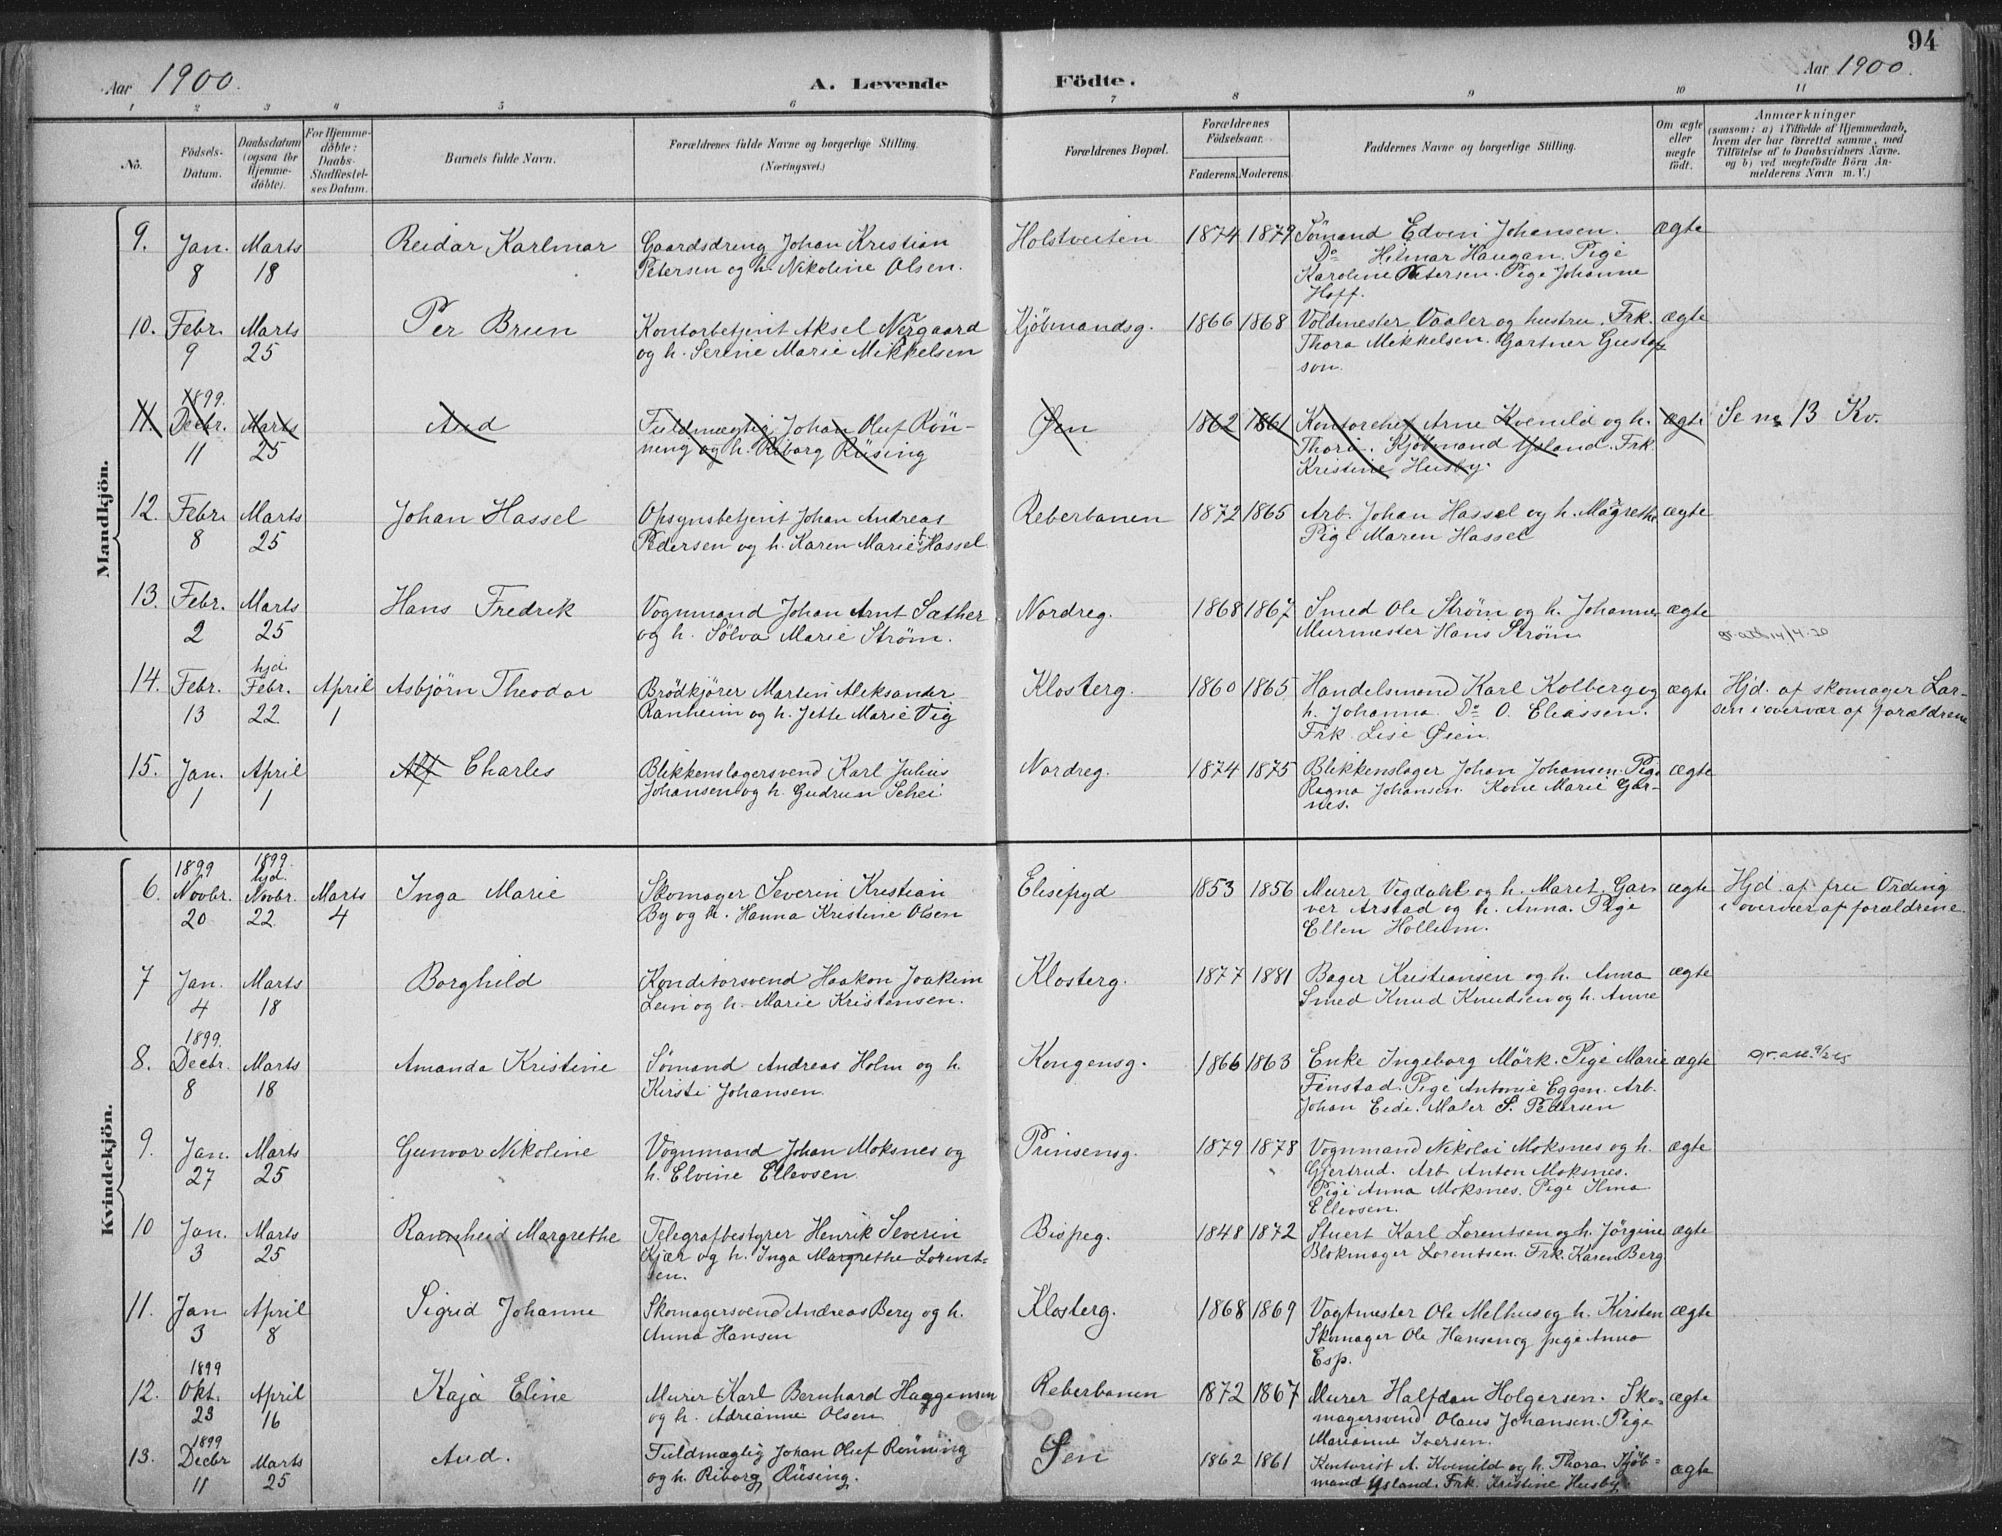 94
Aar 1900.
A. Levende Födte.
Aar 1900.
1 2 3 4 5 6 7 8 9 10 11
No.
Födsels-Datum.
Daabsdatum (ogsaa for Hjemme-döbte).
For Hjemme-döbte: Daabs-Stadfæstel-ses Datum.
Barnets fulde Navn.
Forældrenes fulde Navne og borgerlige Stilling. (Næringsvei.)
Forældrenes Bopæl.
Forældrenes Födselsaar.
Faderens. Moderens.
Faddernes Navne og borgerlige Stilling.
Om ægte eller uægte födt.
Anmærkninger
(saasom: a) i Tilfælde af Hjemmedaab, hvem der har forrettet samme, med Tilföielse af to Daabsvidners Navne, og b) ved uægtefödte Börn An-melderens Navn m. V.)
Mandkjön.
9. Jan. 8 Marts 18 Reidar Karlmar Gaardsdreng Johan Kristian Petersen og h. Nikoline Olsen. Holstveiten 1874 1879 Sömand Edvin Johansen. Do Hilmar Haugan. Pige Karoline Petersen. Pige Johanne Hoff. ægte
10. Febr. 9 Marts 25 Per Brun Kontorbetjent Aksel Nergaard og h. Serine Marie Mikkelsen Kjöbmandsg. 1866 1868 Voldmester Vaaler og hustru. Frk. Thora Mikkelsen. Gartner Gustafson. ægte
11. 1899. Decbr. 11 Marts 25 Aud Fuldmægtig Johan Oluf Rönning og h. Riborg Rüsing Øen 1862 1861 Kontorchef Arne Kvenild og h. Thora. Kjöbmand Ysland. Frk. Kristine Husby. ægte Se no 13 Kv.
12. Febr. 8 Marts 25 Johan Hassel Opsynsbetjent Johan Andreas Pedersen og h. Karen Marie f. Hassel Reberbanen 1872 1865 Arb. Johan Hassel og h. Magrethe Pige Maren Hassel ægte
13. Febr. 2 Marts 25 Hans Fredrik Vognmand Johan Arnt Sæther og h. Sölva Marie Ström. Nordreg. 1868 1867 Smed Ole Ström og h. Johanne Murmester Hans Ström ægte
14/4.20
14. Febr. 13 hjd. Febr. 22 April 1 Asbjörn Theodor Brödkjörer Martin Aleksander Ranheim og h. Jette Marie Vig Klosterg. 1860 1865 Handelsmand Karl Kolberg og h. Johanna. Do O. Eliassen. Frk. Lise Øien. ægte Hjd. af skomager Larsen i overvær af forældrene
15. Jan. 1 April 1 Alf Charles Blikkenslagersvend Karl Julius Johansen og h. Gudrun Schei Nordreg. 1874 1875 Blikkenslager Johan Johansen. Pige Ragna Johansen. Kone Marie Garnes. ægte
Kvindekjön.
6. 1899 Novbr. 20 1899. hjd. Novbr. 22 Marts 4 Inga Marie Skomager Severin Kristian By og h. Hanna Kristine Olsen Elisefryd 1853 1856 Murer Vigdahl og h. Maret. Garver Arstad og h. Anna. Pige Ellen Hollum. ægte Hjd. af fru Ording i overvær af forældrene.
7 Jan. 4 Marts 18 Borghild Konditorsvend Haakon Joakim Lein og h. Marie Kristensen. Klosterg. 1877 1881 Bager Kristiansen og h. Anna Smed Knud Knudsen og h. Anne ægte
8. 1899. Decbr. 8 Marts 18 Amanda Kristine Sömand Andreas Holm og h. Kirsti Johansen. Kongensg. 1866 1863 Enke Ingeborg Mörk. Pige Marie Finstad. Pige Antonie Eggen. Arb. Johan Eide. Maler S. Pedersen ægte
9. Jan. 27 Marts 25 Gunvor Nikoline Vognmand Johan Moksnes og h. Elvine Ellevsen Prinsensg. 1879 1878 Vognmand Nikolai Moksnes og h. Gjertrud. Arb. Anton Moksnes. Pige Anna Moksnes. Pige Alma Ellevsen. ægte
10 Jan. 3 Marts 25 Rannheid Margrethe Telegrafbestyrer Henrik Severin Kjær og h. Inga Margrethe Lorentsen. Bispeg. 1848 1872 Stuert Karl Lorentsen og h. Jörgine Blokmager Lorentsen. Frk. Karen Berg ægte
11. Jan 3 April 8 Sigrid Johanne Skomagersvend Andreas Berg og h. Anna Hansen Klosterg. 1868 1869 Vagtmester Ole Melhus og h. Kirsten Skomager Ole Hansen og pige Anna Esp. ægte
12. 1899 Okt. 23 April 16 Kaja Eline Murer Karl Bernhard Haggensen og h. Adrianne Olsen Reberbanen 1872 1867 Murer Halfdan Holgersen. Skomagersvend Olaus Johansen. Pige Marianne Iversen. ægte
13. 1899 Decbr 11 Marts 25 Aud. Fuldmægtig Johan Oluf Rönning og h. Riborg Rüsing. Øen 1862 1861 Kontorist A. Kvenild og h. Thora. Kjöbmand Ysland. Frk. Kristine Husby. ægte